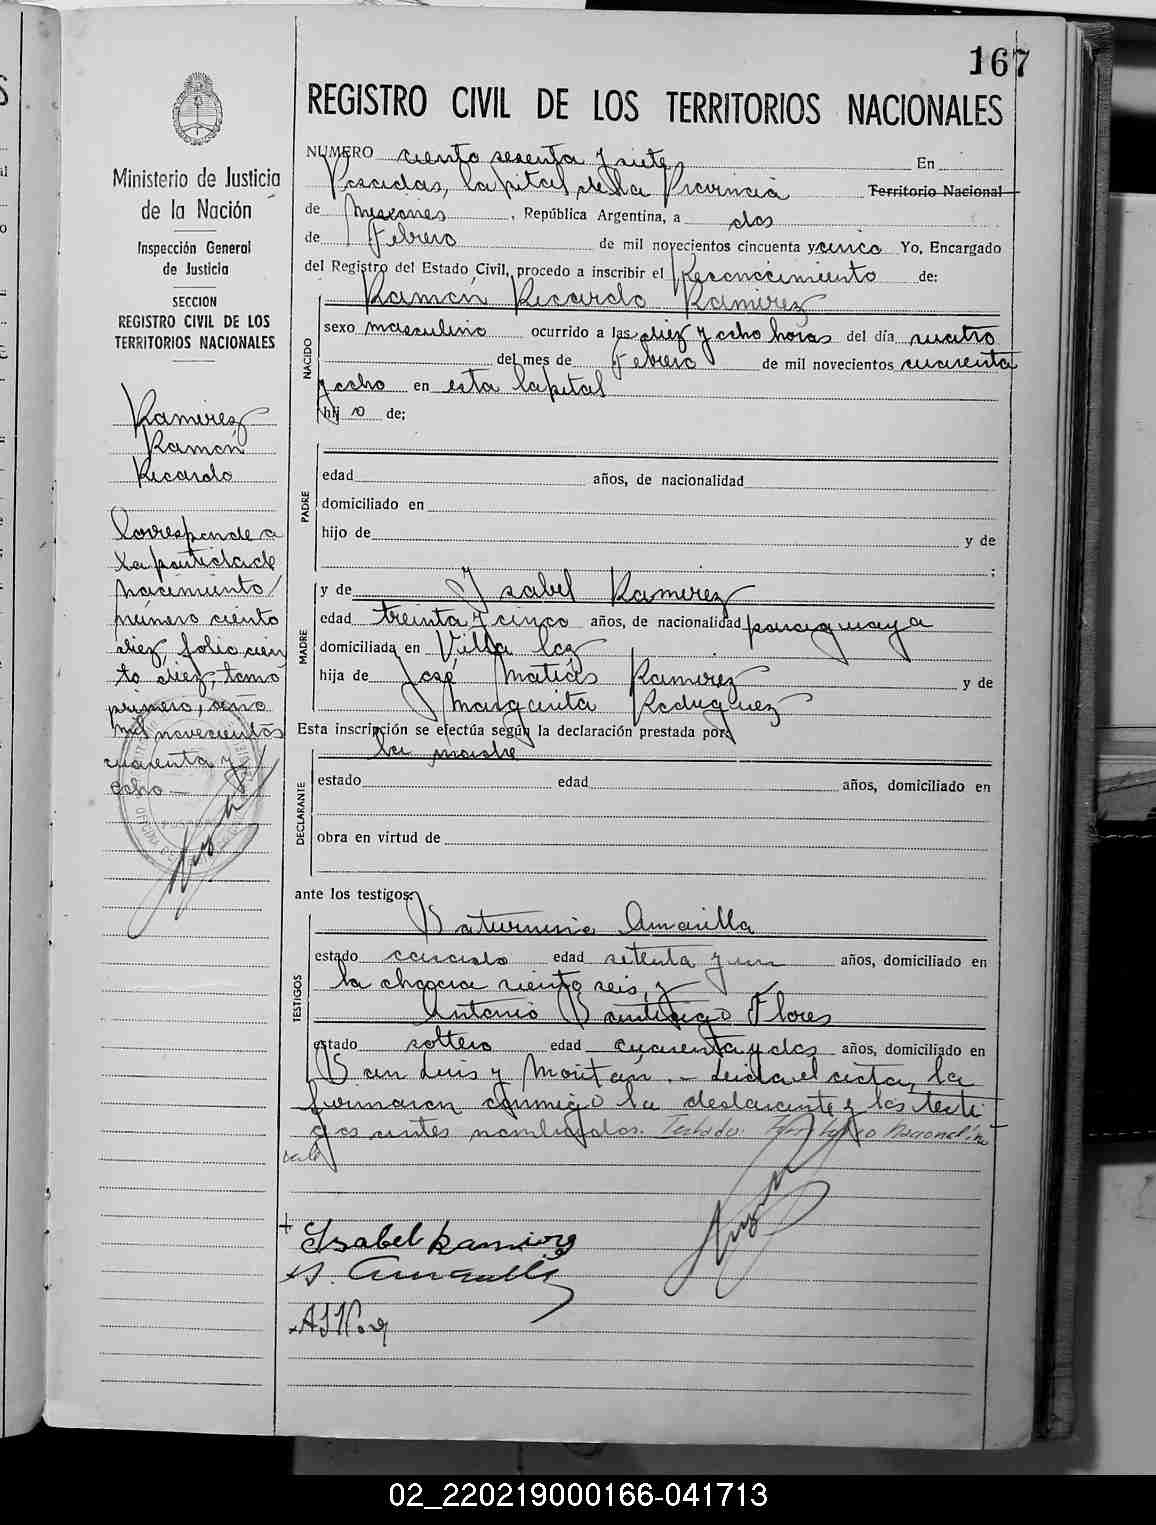 167
REGISTRO CIVIL DE LOS TERRITORIOS NACIONALES
Ministerio de Justicia
de la Nación
Inspección General
de Justicia
SECCION
REGISTRO CIVIL DE LOS
TERRITORIOS NACIONALES
Ramirez
Ramón
Ricardo
Corresponde a
la partida de
nacimiento
número ciento
diez, folio cien
to diez, tomo
primero, año
mil novecientos
cuarenta y
ocho.—
NUMERO ciento sesenta y siete En
Posadas, Capital de la Provincia Territorio Nacional
de Misiones, República Argentina, a dos
de Febrero de mil novecientos cincuenta y cinco Yo, Encargado
del Registro del Estado Civil, procedo a inscribir el Reconocimiento de:
Ramón Ricardo Ramirez
NACIDO
sexo masculino ocurrido a las diez y ocho horas del día cuatro
del mes de Febrero de mil novecientos cuarenta
y ocho en esta Capital
hijo de:
PADRE
edad años, de nacionalidad
domiciliado en
hijo de y de
;
MADRE
y de Ysabel Ramirez
edad treinta y cinco años, de nacionalidad paraguaya
domiciliada en Villa Coz
hija de José Matías Ramirez y de
Margarita Rodriguez
Esta inscripción se efectúa según la declaración prestada por:
la madre
DECLARANTE
estado edad años, domiciliado en
obra en virtud de
ante los testigos:
TESTIGOS
Saturnino Amarilla
estado casado edad setenta y un años, domiciliado en
la chacra ciento seis, y
Antonio Santiago Flores
estado soltero edad cuarenta y dos años, domiciliado en
San Luis y Moritán.— Leida el acta, la
firmaron conmigo la declarante y los testi
gos antes nombrados. Testado: Territorio Nacional: no
vale
Isabel Ramirez
S. Amarilla
02_220219000166-041713